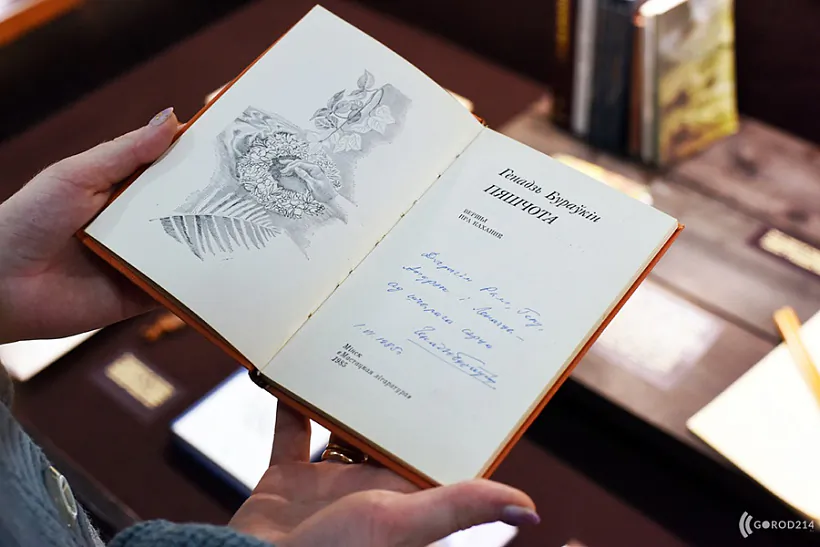 Генадзь Бураўкін
ПЯШЧОТА
ВЕРШЫ
ПРА КАХАННЕ
Дарагім Рыме, Геру,
Андрэю і
ад шчырага сэрца
1985г.
Мінск
«Мастацкая літаратура»
1985
GOROD214